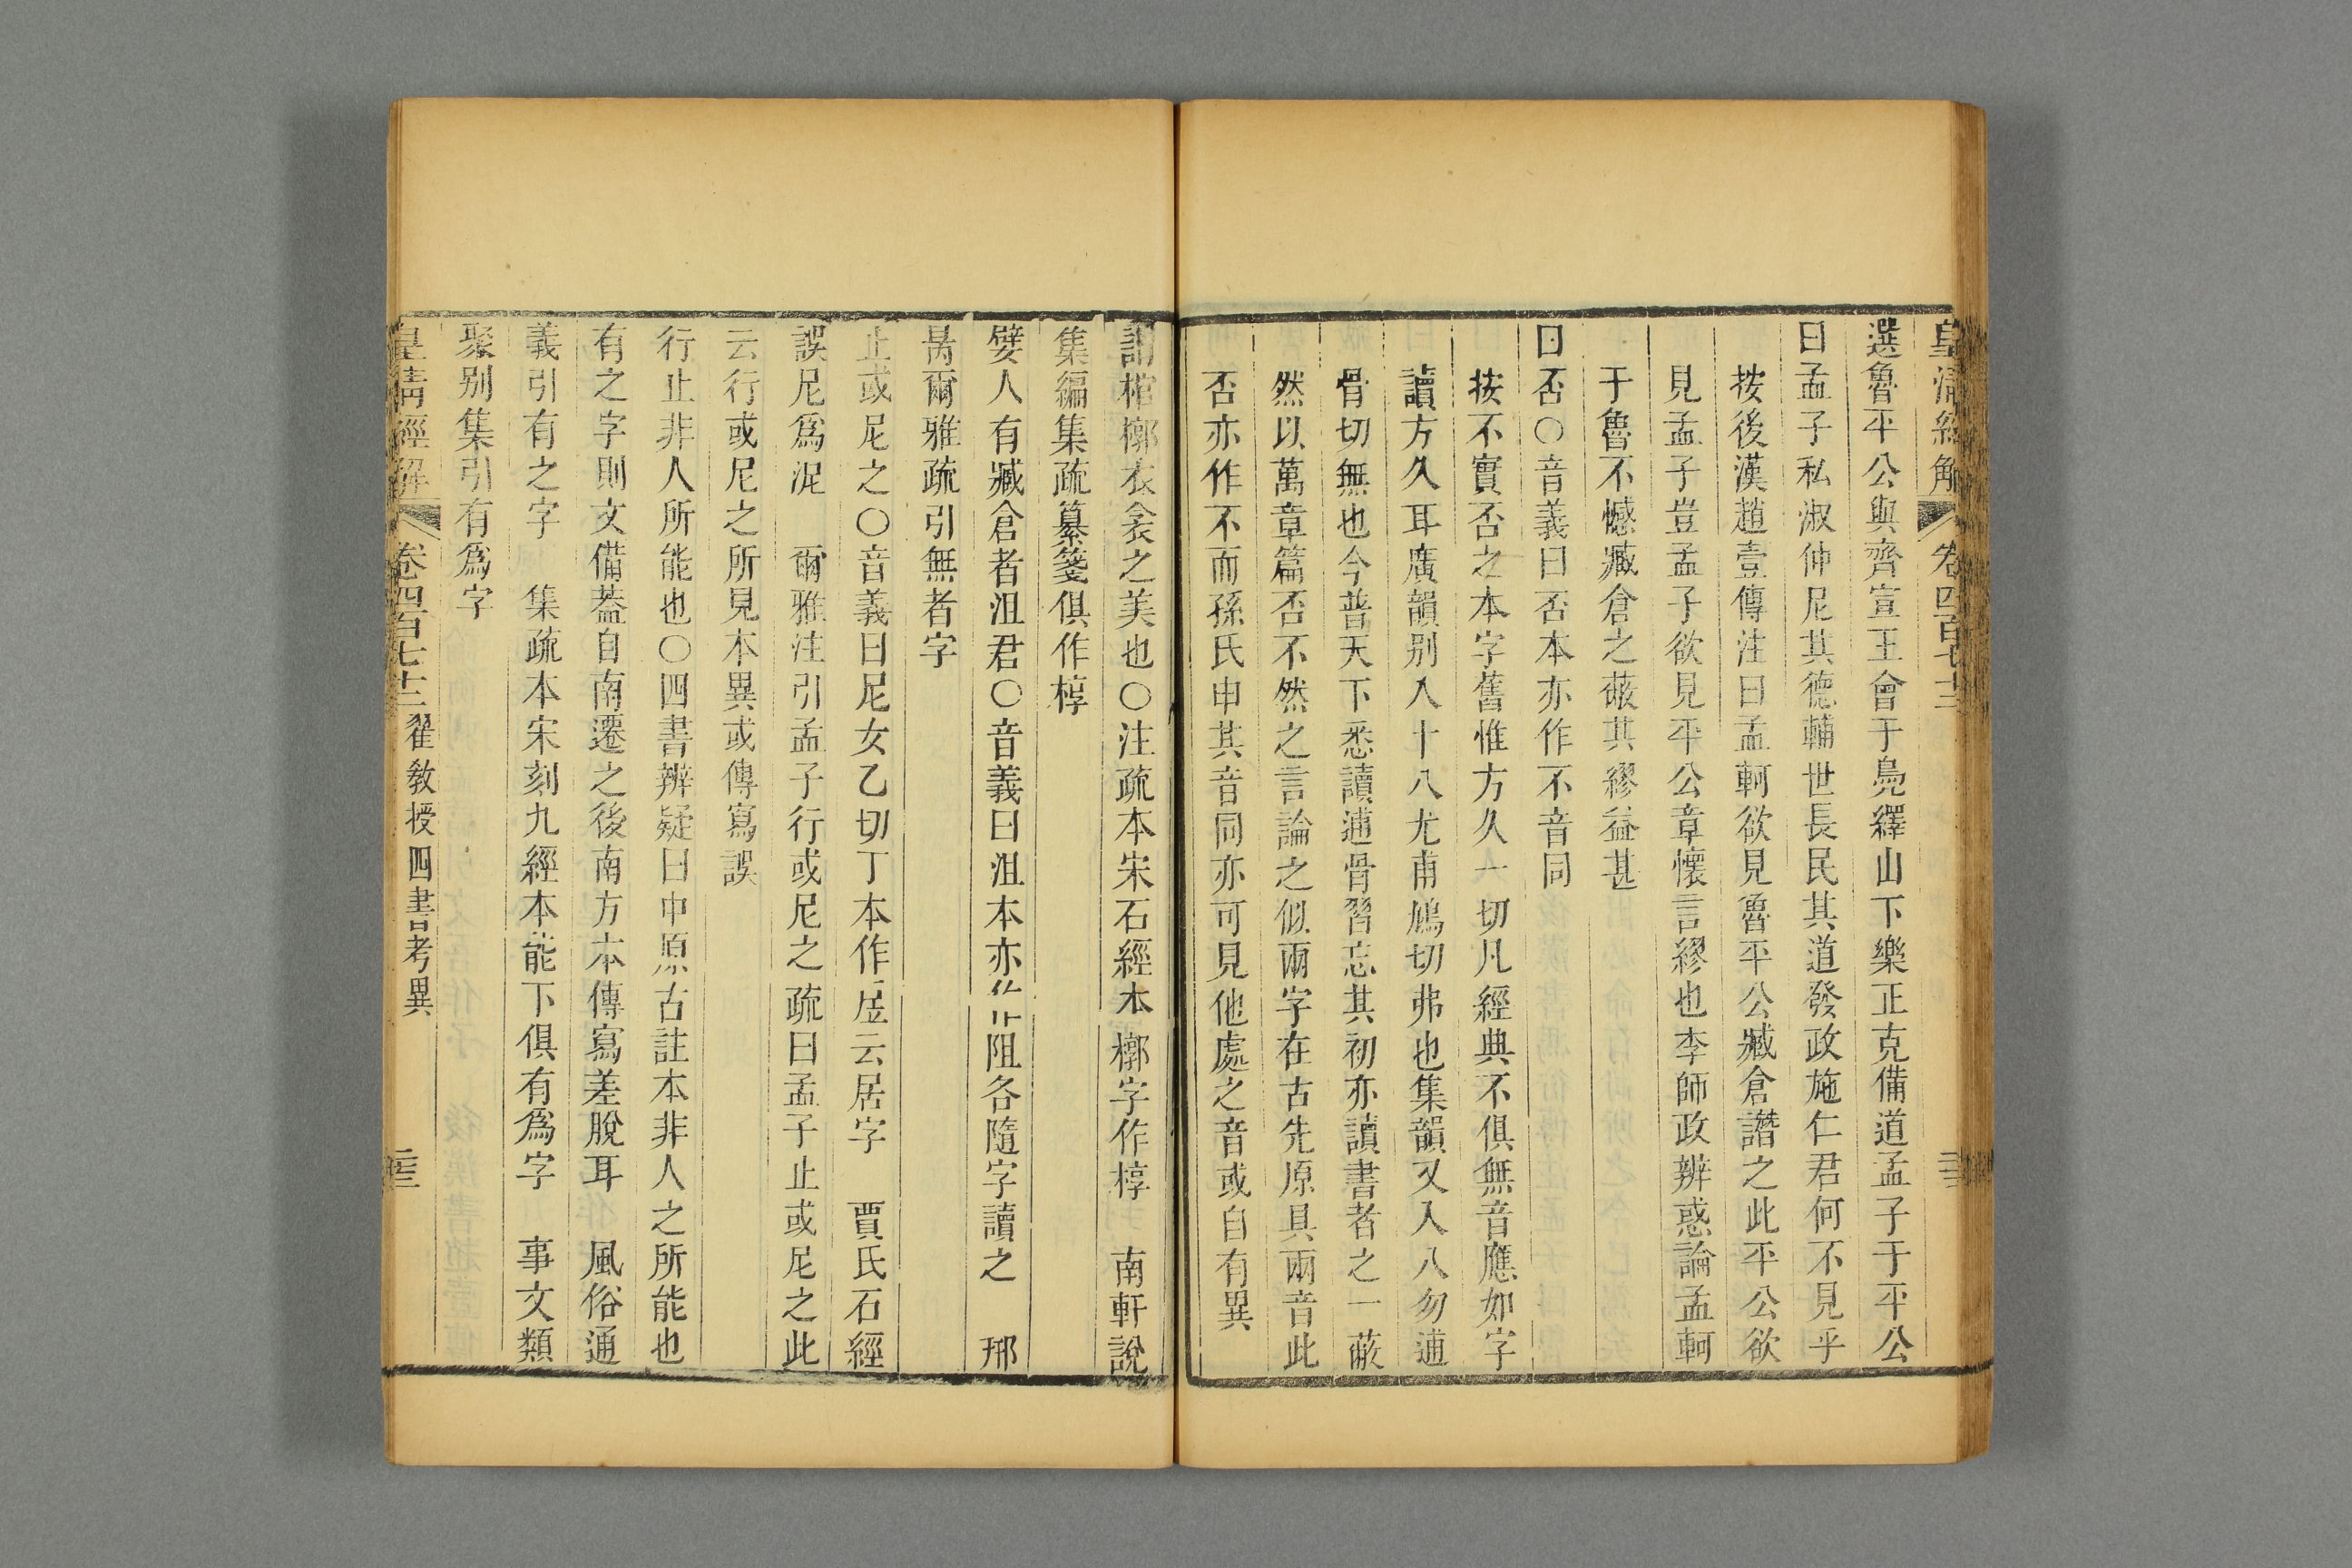 皇清經解 卷四百七十二
選魯平公與齊宣王會于鳧繹山下樂正克備道孟子于平公
曰孟子私淑仲尼其德輔世長民其道發政施仁君何不見乎
按後漢趙壹傳注曰孟軻欲見魯平公臧倉譖之此平公欲
見孟子豈孟子欲見平公章懷言繆也李師政辨惑論孟軻
于魯不憾臧倉之蔽其繆益甚
曰否○音義曰否本亦作不音同
按不實否之本字舊惟方久一切凡經典不俱無音應如字
讀方久耳廣韻别入十八尤甫鳩切弗也集韻又入八勿逋
骨切無也今普天下悉讀逋骨習忘其初亦讀書者之一蔽
然以萬章篇否不然之言論之似兩字在古先原具兩音此
否亦作不而孫氏申其音同亦可見他處之音或自有異
謂棺槨衣衾之美也○注疏本宋石經本槨字作椁 南軒說
集編集疏纂箋俱作椁
嬖人有臧倉者沮君○音義曰沮本亦作阻各隨字讀之 邢
昺爾雅疏引無者字
止或尼之○音義曰尼女乙切丁本作𡰥云居字 賈氏石經
誤尼爲泥 爾雅注引孟子行或尼之疏曰孟子止或尼之此
云行或尼之所見本異或傳寫誤
行止非人所能也○四書辨疑曰中原古註本非人之所能也
有之字則文備葢自南遷之後南方本傳寫差脫耳 風俗通
義引有之字 集疏本宋刻九經本能下俱有爲字 事文類
聚别集引有爲字
皇清經解 卷四百七十二 翟敎授四書考異